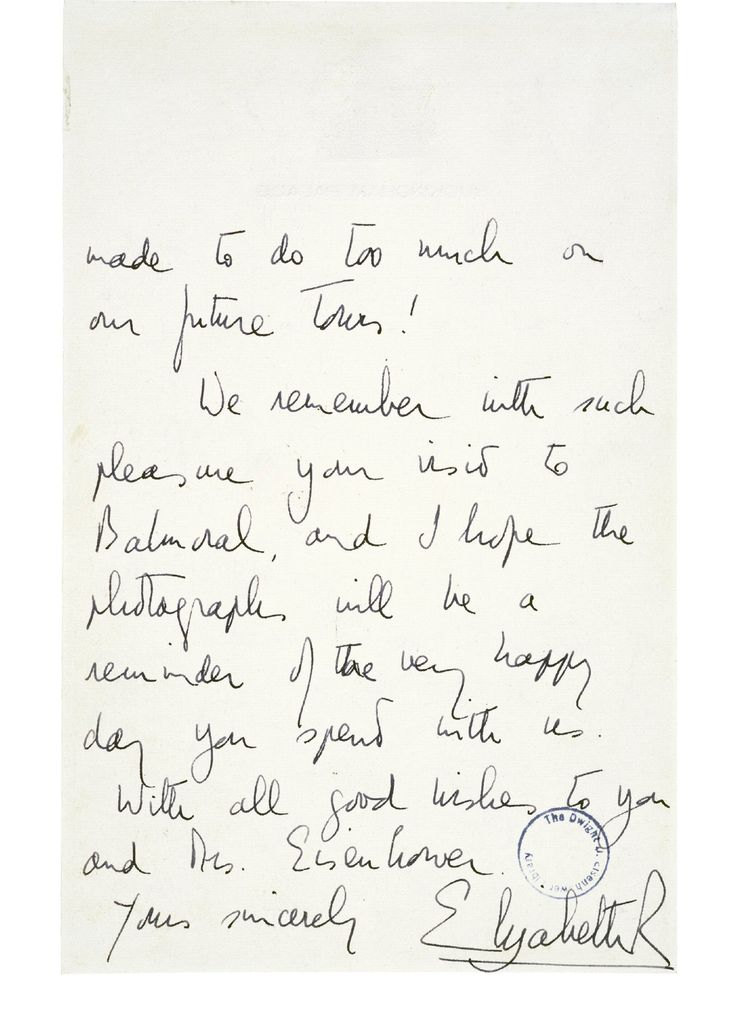 made to do too much on
our future Tours!
We remember with such
pleasure your visit to
Balmoral, and I hope the
photographs will be a
reminder of the very happy
day you spend with us.
With all good wishes to you
and Mrs. Eisenhower.
Yours sincerely
Elizabeth R
The Dwight D. Eisenhower Library